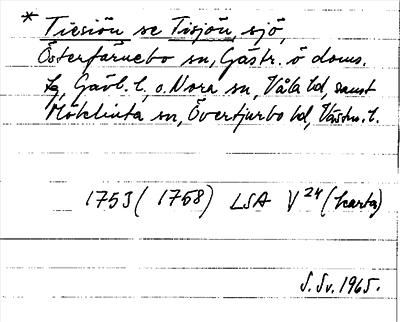 * Tiesiön se Tisjön, sjö,
Österfärnebo sn, Gästr. ö doms.
sg, Gävl. l., o. Nora sn, Våla hd, samt
Möklinta sn, Övertjurbo hd, Västm. l.
1753 (1758) LSA V 24 (karta)
S. Sv. 1965.